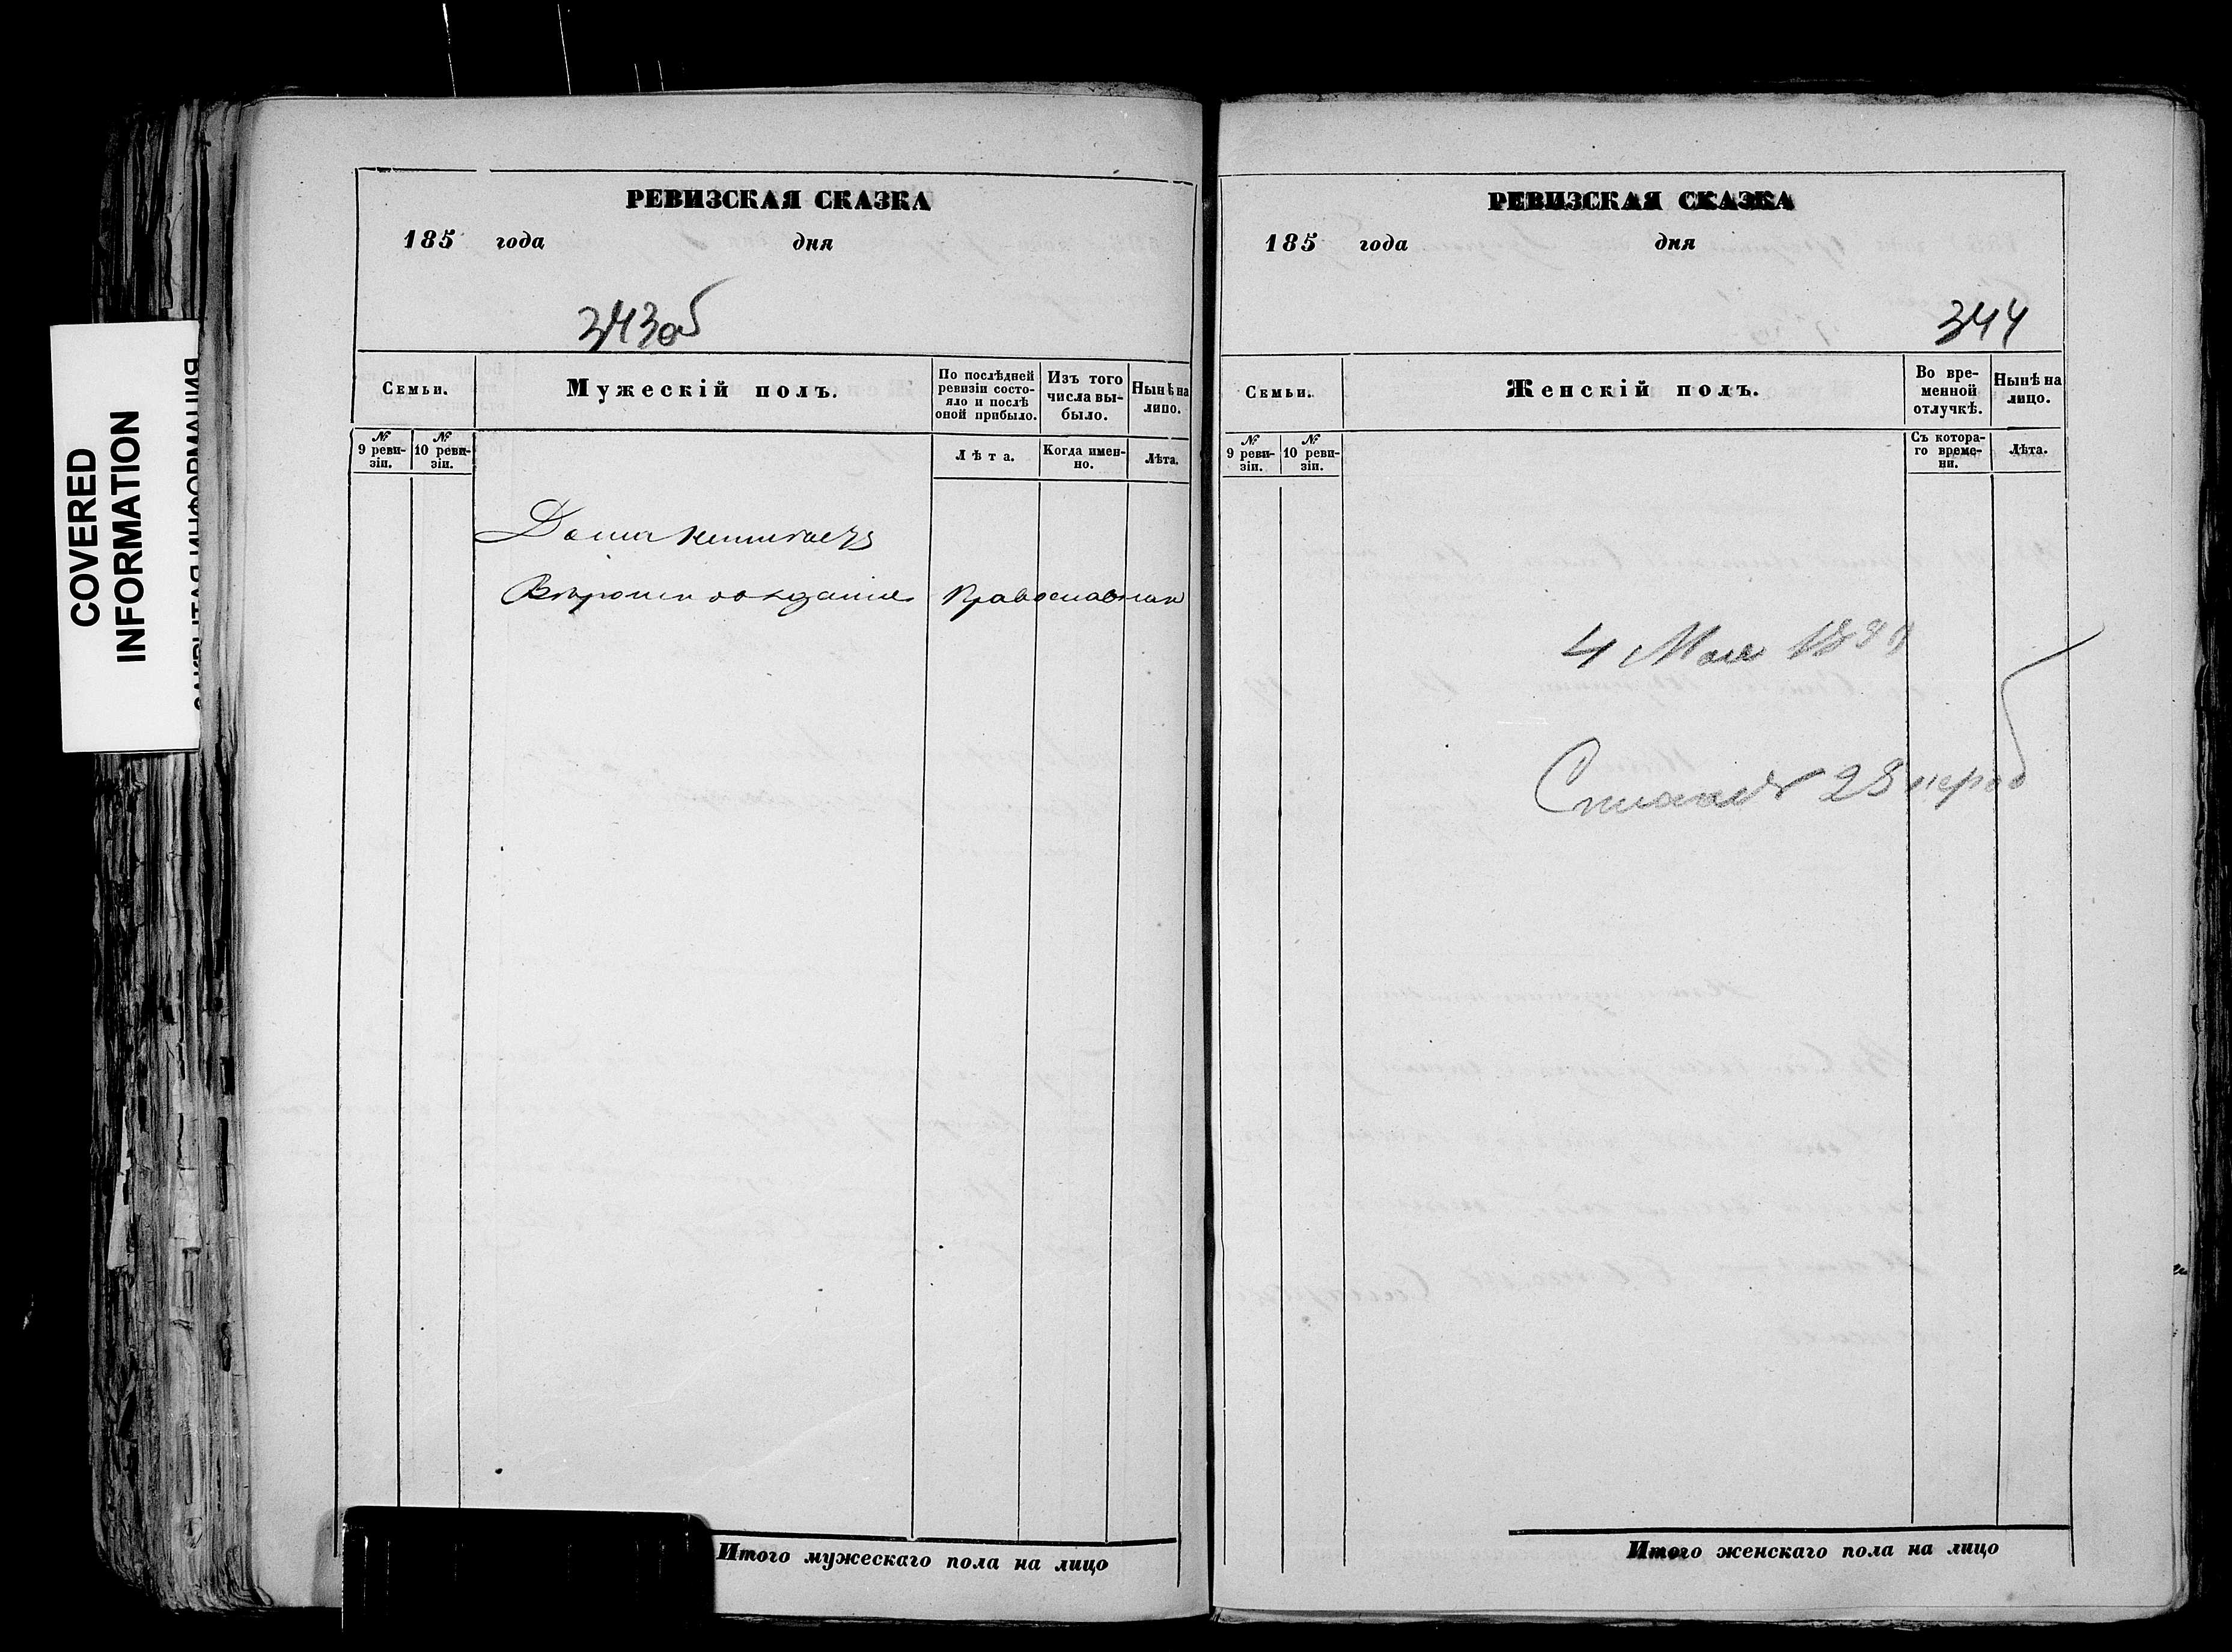 COVERED
INFORMATION
РЕВИЗСКАЯ СКАЗКА
185 года дня
343об
Семьи.
Мужескій полъ.
По послѣдней ревизіи состояло и послѣ оной прибыло.
Изъ того числа выбыло.
Нынѣ на лицо.
№ 9 ревизіи.
№ 10 ревизіи.
Лѣта.
Когда именно.
Лѣта.
Православнаго
РЕВИЗСКАЯ СКАЗКА
185 года дня
344
Семьи.
Женскій полъ.
Во временной отлучкѣ.
Нынѣ на лицо.
№ 9 ревизіи.
№ 10 ревизіи.
Съ котораго времени.
Лѣта.
4 Мая
28
Итого мужескаго пола на лицо
Итого женскаго пола на лицо